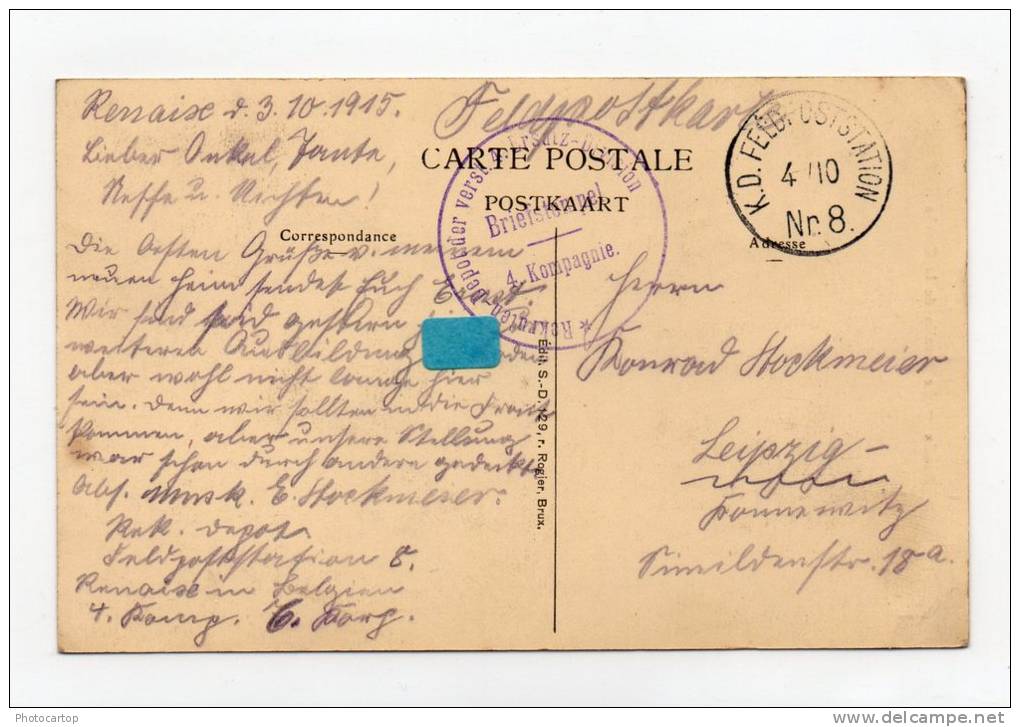 Renaise d. 3.10.1915.
Feldpostkarte
Lieber Onkel, Tante,
Neffe u. Nichten!
CARTE POSTALE
POSTKAART
Correspondance
Adresse
K.D. FELDPOSTSTATION
4/10
Nr. 8.
Rekruten-Depot der verst. Ersatz-
Briefstempel
4. Kompagnie.
Die besten Grüße v. meinem
neuen Heim sendet Euch Ernst.
Wir sind gestern
weiteren Ausbildung
aber wohl nicht lange hier
sein. Denn wir sollten in die Front
kommen, aber unsere Stellung
war schon durch andere gedeckt.
Abs. Musk. E. Stockmeier.
Rek. Depot
Feldpoststation 8.
Renaise in Belgien
4. Komp. 6. Korp.
Herrn
Konrad Stockmeier
Leipzig-
Connewitz
Simildenstr. 18a.
Édit. S.-D. 129, r. Rogier, Brux.
Photocartop
delcampe.net